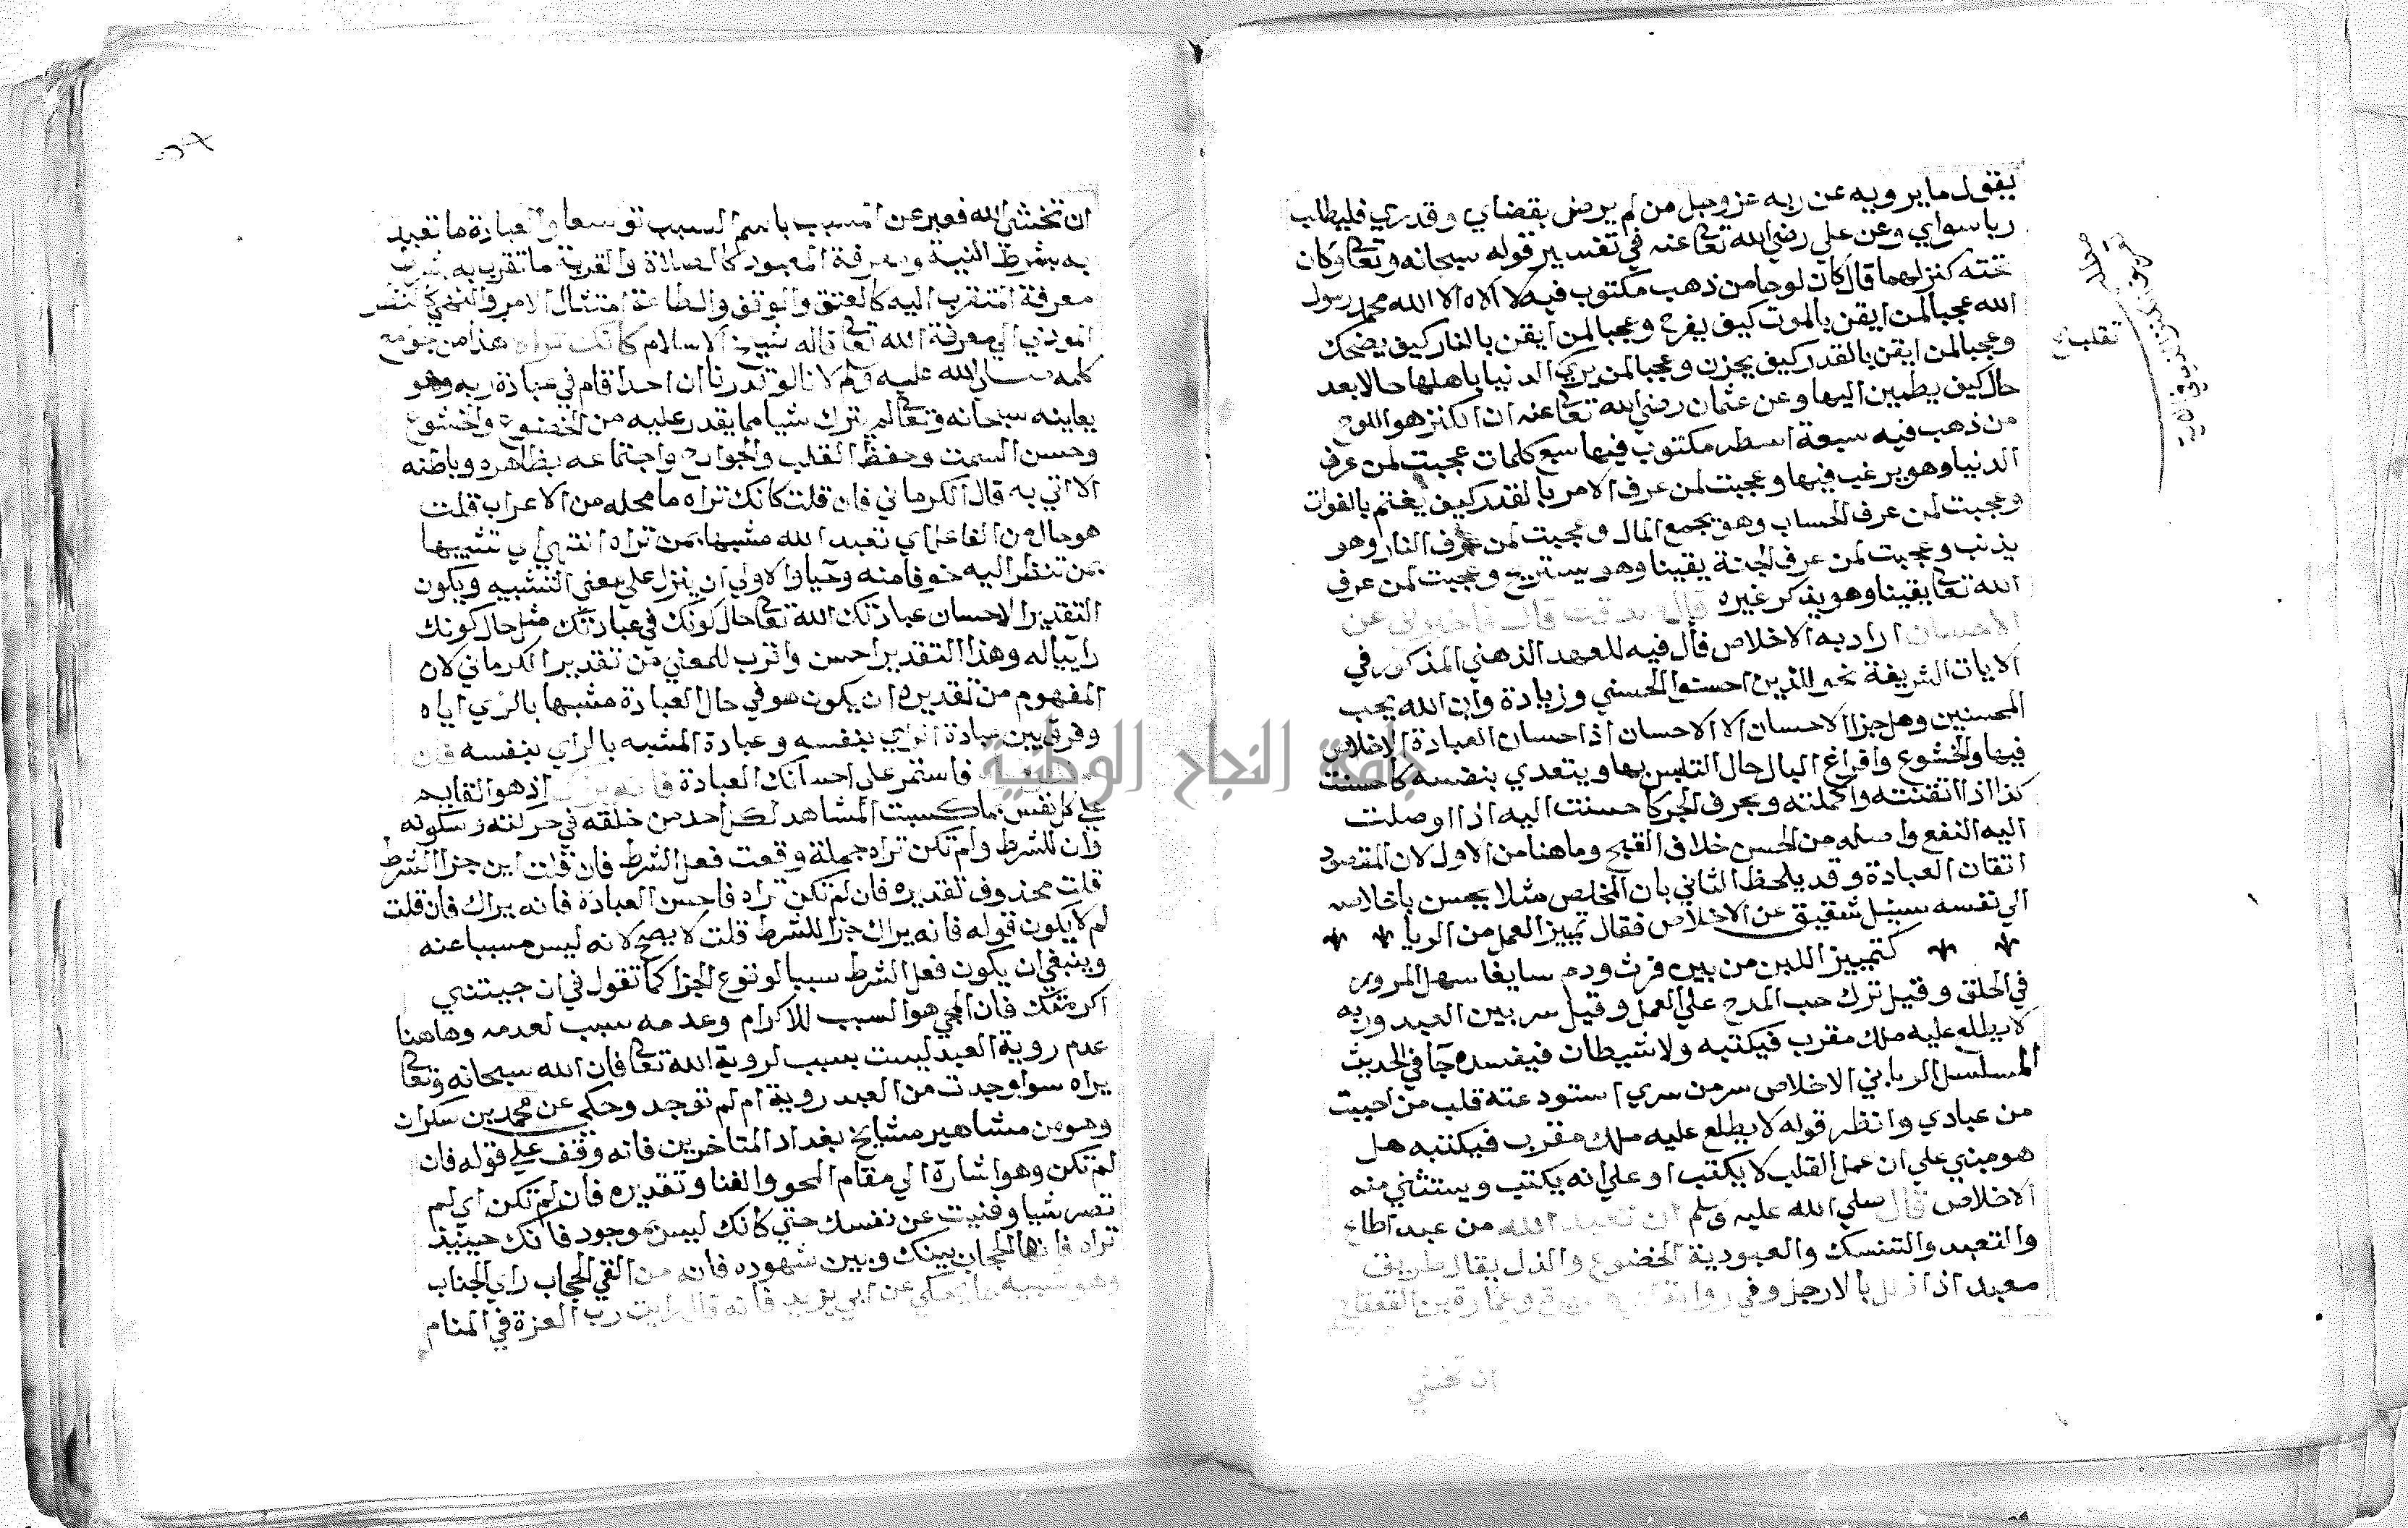 يقول ما يرويه عن ربه عز وجل من لم يرض بقضاي وقدري فليطلب
ربا سواي وعن علي رضي الله تعالى عنه في تفسير قوله سبحانه وتعالى وكان
تحته كنز لهما قال كان لوحا من ذهب مكتوب فيه لا اله الا الله محمد رسول
الله عجبا لمن ايقن بالموت كيف يفرح وعجبا لمن ايقن بالنار كيف يضحك
وعجبا لمن ايقن بالقدر كيف يحزن وعجبا لمن يري الدنيا باهلها حالا بعد
حال كيف يطمين اليها وعن عثمان رضي الله تعالى عنه ان الكنز هو اللوح
من ذهب فيه سبعة اسطر مكتوب فيها سبع كلمات عجبت لمن عرف
الدنيا وهو يرغب فيها وعجبت لمن عرف الامر بالقدر كيف يغتم بالفوات
وعجبت لمن عرف الحساب وهو يجمع المال وعجبت لمن عرف النار وهو
يذنب وعجبت لمن عرف الجنة يقينا وهو يستريح وعجبت لمن عرف
الله تعالى يقينا وهو يذكر غيره قال صدقت قال فاخبرني عن
الاحسان اراد به الاخلاص فأل فيه للعهد الذهني المذكور في
الايات الشريفة نحو للذين احسنوا الحسني وزيادة وان الله يحب
المحسنين وهل جزا الاحسان الا الاحسان اذ احسان العبادة الاخلاص
فيها والخشوع وافراغ البال حال التلبس بها ويتعدي بنفسه كاحسنت
كذا اذا اتقنته واكملته وبحرف الجر كاحسنت اليه اذا اوصلت
اليه النفع واصله من الحسن خلاف القبح وما هنا من الاول لان المقصود
اتقان العبادة وقد يلحظ الثاني بان المخلص مثلا يحسن باخلاصه
الي نفسه سيئل شقيق عن الاخلاص فقال تمييز العمل من الريا
كتمييز اللبن من بين فرث ودم سايغا سهل المرور
في الحلق وقيل ترك حب المدح علي العمل وقيل سر بين العبد وربه
لا يطلع عليه ملك مقرب فيكتبه ولا شيطان فيفسده جآ في الحديث
المسلسل الرباني الاخلاص سر من سري استودعته قلب من احببت
من عبادي وانظر قوله لا يطلع عليه ملك مقرب فيكتبه هل
هو مبني علي ان عمل القلب لا يكتب او علي انه يكتب ويستثني منه
الاخلاص قال صلي الله عليه وسلم ان تعبد الله من عبد اطاع
والتعبد والتنسك والعبودية الخضوع والذل يقال طريق
معبد اذا ذلل بالارجل وفي رواية وعمارة بن القعقاع
ان تخشي
تقلب
ان تخشي الله فعبر عن المسبب باسم السبب توسعا والعبادة ما تعبد
به بشرط النية ومعرفة المعبود كالصلاة والقربة ما تقرب به بشرط
معرفة المتقرب اليه كالعتق والوقف والطاعة امتثال الامر والنهي كالنظر
المودي الي معرفة الله تعالى قاله شيخ الاسلام كانك تراه هذا من جوامع
كلمه صلي الله عليه وسلم لانا لو قدرنا ان احدا قام في عبادة ربه وهو
يعاينه سبحانه وتعالى لم يترك شيا مما يقدر عليه من الخضوع والخشوع
وحسن السمت وحفظ القلب والجوارح واجتماعه بظاهره وباطنه
الا اتي به قال الكرماني فان قلت كانك تراه ما محله من الاعراب قلت
هو حال من الفاعل اي تعبد الله مشبها بمن تراه انتهي اي تشبيها
بمن تنظر اليه خوفا منه وحيا والاولي ان ينزل علي معني التشبيه ويكون
التقدير الاحسان عبادتك الله تعالى حال كونك في عبادتك مثل حال كونك
رآييا له وهذا التقدير احسن واقرب للمعني من تقدير الكرماني لان
المفهوم من تقديره ان يكون هو في حال العبادة مشبها بالرآي اياه
وفرق بين عبادة الرآي بنفسه وعبادة المشبه بالرآي بنفسه فان
لم تكن تراه فاستمر علي احسانك العبادة فانه يراك اذ هو القايم
علي كل نفس بما كسبت المشاهد لكل احد من خلقه في حركته وسكونه
وان للشرط ولم تكن تراه جملة وقعت فعل الشرط فان قلت اين جزا الشرط
قلت محذوف تقديره فان لم تكن تراه فاحسن العبادة فانه يراك فان قلت
لم لا يكون قوله فانه يراك جزا للشرط قلت لا يصح لانه ليس مسببا عنه
وينبغي ان يكون فعل الشرط سببا لوقوع الجزا كما تقول في ان جيتني
اكرمتك فان المجي هو السبب للاكرام وعدمه سبب لعدمه وهاهنا
عدم روية العبد ليست بسبب لروية الله تعالى فان الله سبحانه وتعالى
يراه سوا وجدت من العبد روية ام لم توجد وحكي عن محمد بن سكران
وهو من مشاهير مشايخ بغداد المتاخرين فانه وقف علي قوله فان
لم تكن وهو اشارة الي مقام المحو والفنا وتقديره فان لم تكن اي لم
تصر شيا وفنيت عن نفسك حتي كانك ليس موجود فانك حينيذ
تراه فانها الحجاب بينك وبين شهوده فانه من القي الحجاب راي الجناب
وهو شبيه بما يحكي عن ابي يزيد فانه قال رايت رب العزة في المنام
جامعة النجاح الوطنية